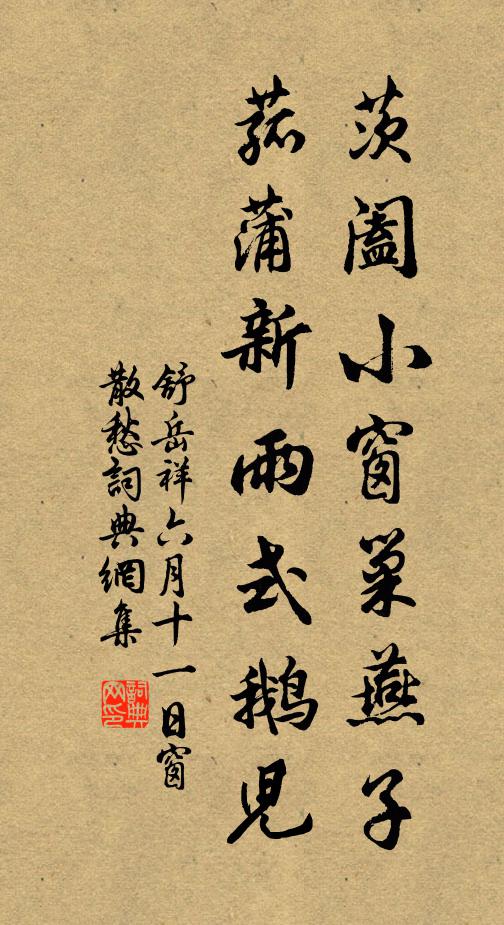 茨闔小窗巢燕子
菰蒲新雨弌鵝兒
舒岳祥六月十一日窗
散愁詞典網集
詞典
网印